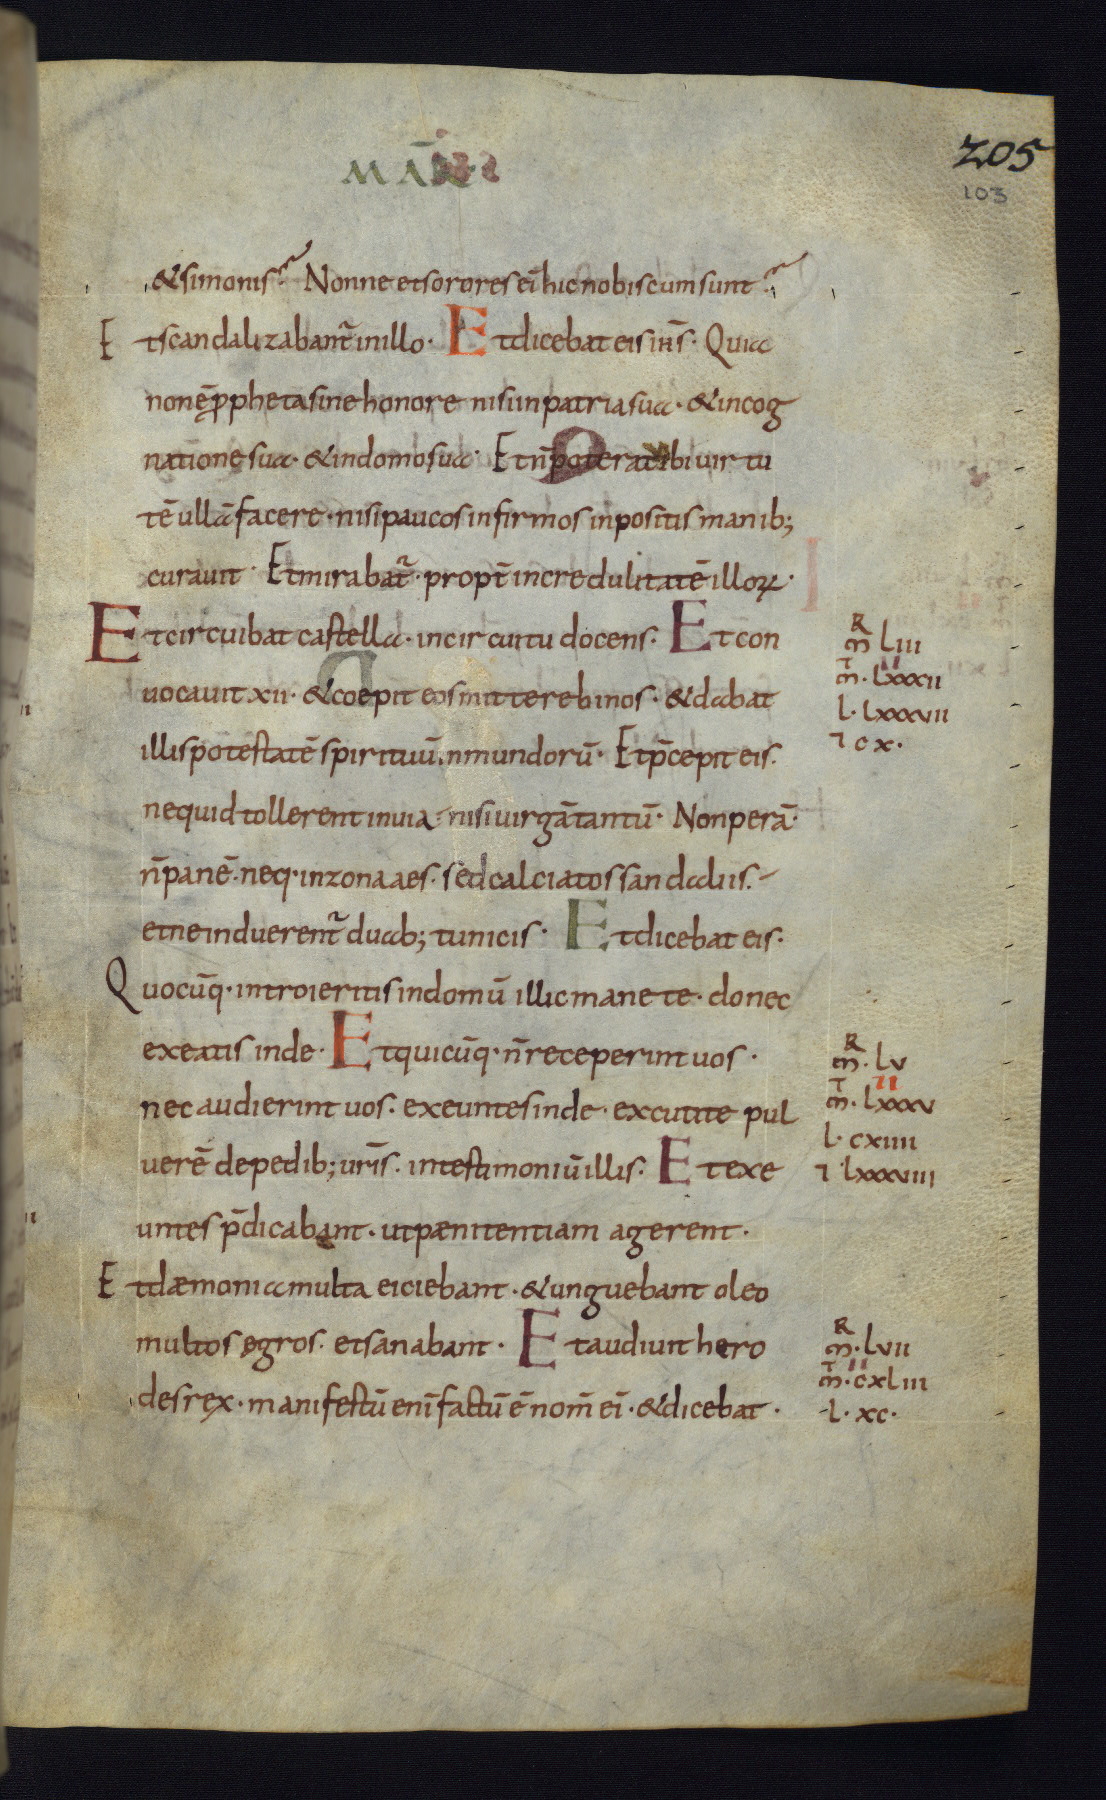 MAR̄
205
103
& simonis? Nonne et sorores ei̅ hic nobiscum sunt?
Et scandalizabant̅ in illo· Et dicebat eis ih̅s· Quia
non e̅ p̅pheta sine honore nisi in patria sua· & in cog
natione sua· & in domo sua· Et n̅ poterat ibi uirtu
te̅ ulla̅ facere· nisi paucos infirmos inpositis manib;
curauit· Et mirabat̅· propt̅ incredulitate̅ illoꝝ·
Et circuibat castella· in circuitu docens· Et con
uocauit xii· & coepit eos mittere binos· & dabat
illis potestate̅ spirituu̅ inmundoru̅· Et p̅cepit eis·
ne quid tollerent in uia· nisi uirga̅ tantu̅· Non pera̅·
n̅ pane̅· neq· in zona aes· sed calciatos sandaliis·
et ne induerent̅ duab; tunicis· Et dicebat eis·
Quocu̅q· introieritis in domu̅ illic manete· donec
exeatis inde· Et quicu̅q· n̅ receperint uos·
nec audierint uos· exeuntes inde· excutite pul
uere̅ de pedib; ur̅is· in testimoniu̅ illis· Et exe
untes p̅dicabant· ut pænitentiam agerent·
Et dæmonia multa eiciebant· & unguebant oleo
multos ęgros· et sanabant· Et audiuit hero
des rex· manifestu̅ eni̅ factu̅ e̅ nom̅ ei̅· & dicebat·
R
m̅ Liii
m̅· Lxxxii
l· Lxxxvii
⁊ cx·
R
m̅· Lv
ii
m̅· Lxxxv
l· cxiiii
⁊ Lxxxviii
R
m̅· Lvii
ii
m̅· cxLiii
l· xc·